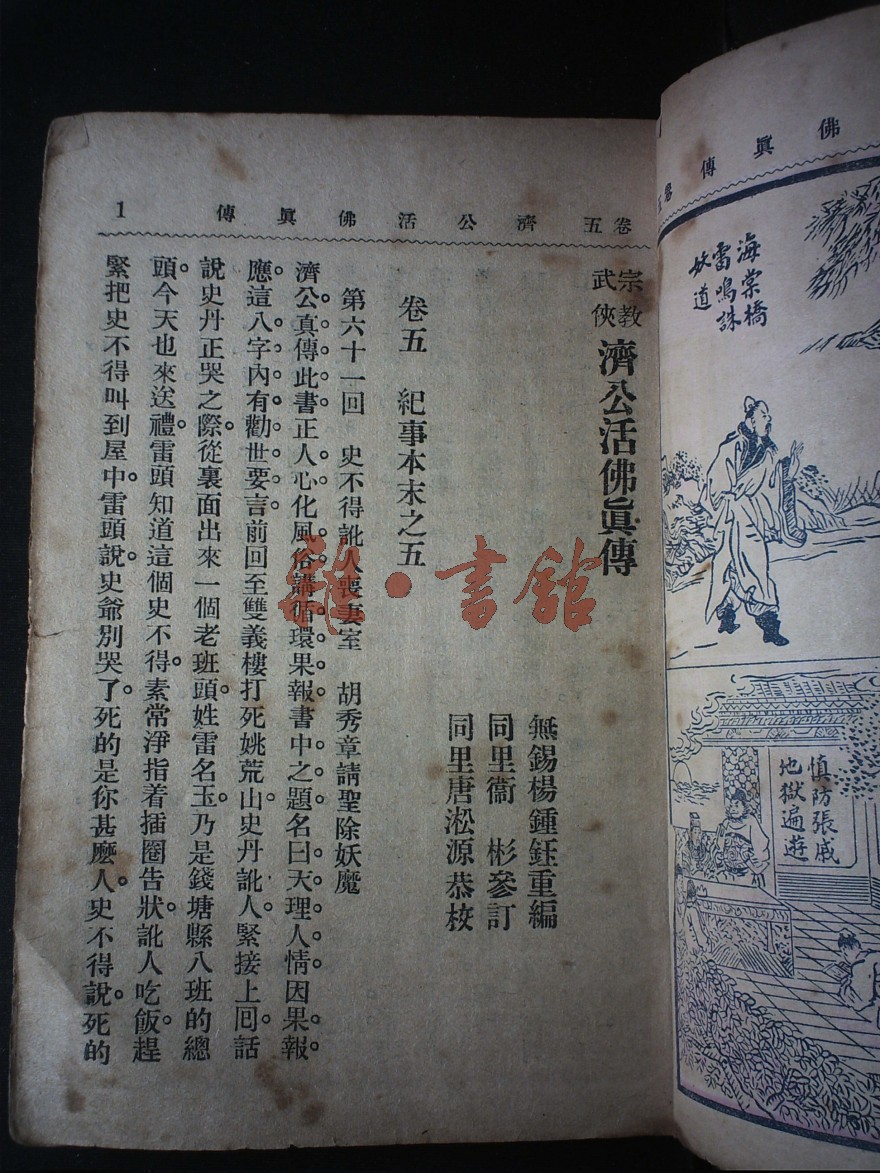 卷五　濟公活佛眞傳　1
宗教
武俠
濟公活佛眞傳
無錫楊鍾鈺重編
同里衞　彬參訂
同里唐淞源恭校
卷五　紀事本末之五
第六十一回　史不得訛人喪妻室　胡秀章請聖除妖魔
濟公真傳此書正人心化風俗講循環果報書中之題名曰天理人情因果報
應。這八字內有勸世要言。前回至雙義樓打死姚荒山史丹訛人緊接上回話
說史丹正哭之際。從裏面出來一個老班頭。姓雷名玉。乃是錢塘縣八班的總
頭。今天也來送禮。雷頭知道這個史不得。素常淨指着插圈告狀。訛人吃飯。趕
緊把史不得叫到屋中。雷頭說。史爺別哭了。死的是你甚麼人。史不得說。死的
雜·書館
佛眞傳
海棠橋
雷鳴誅
妖道
慎防張戚
地獄遍遊